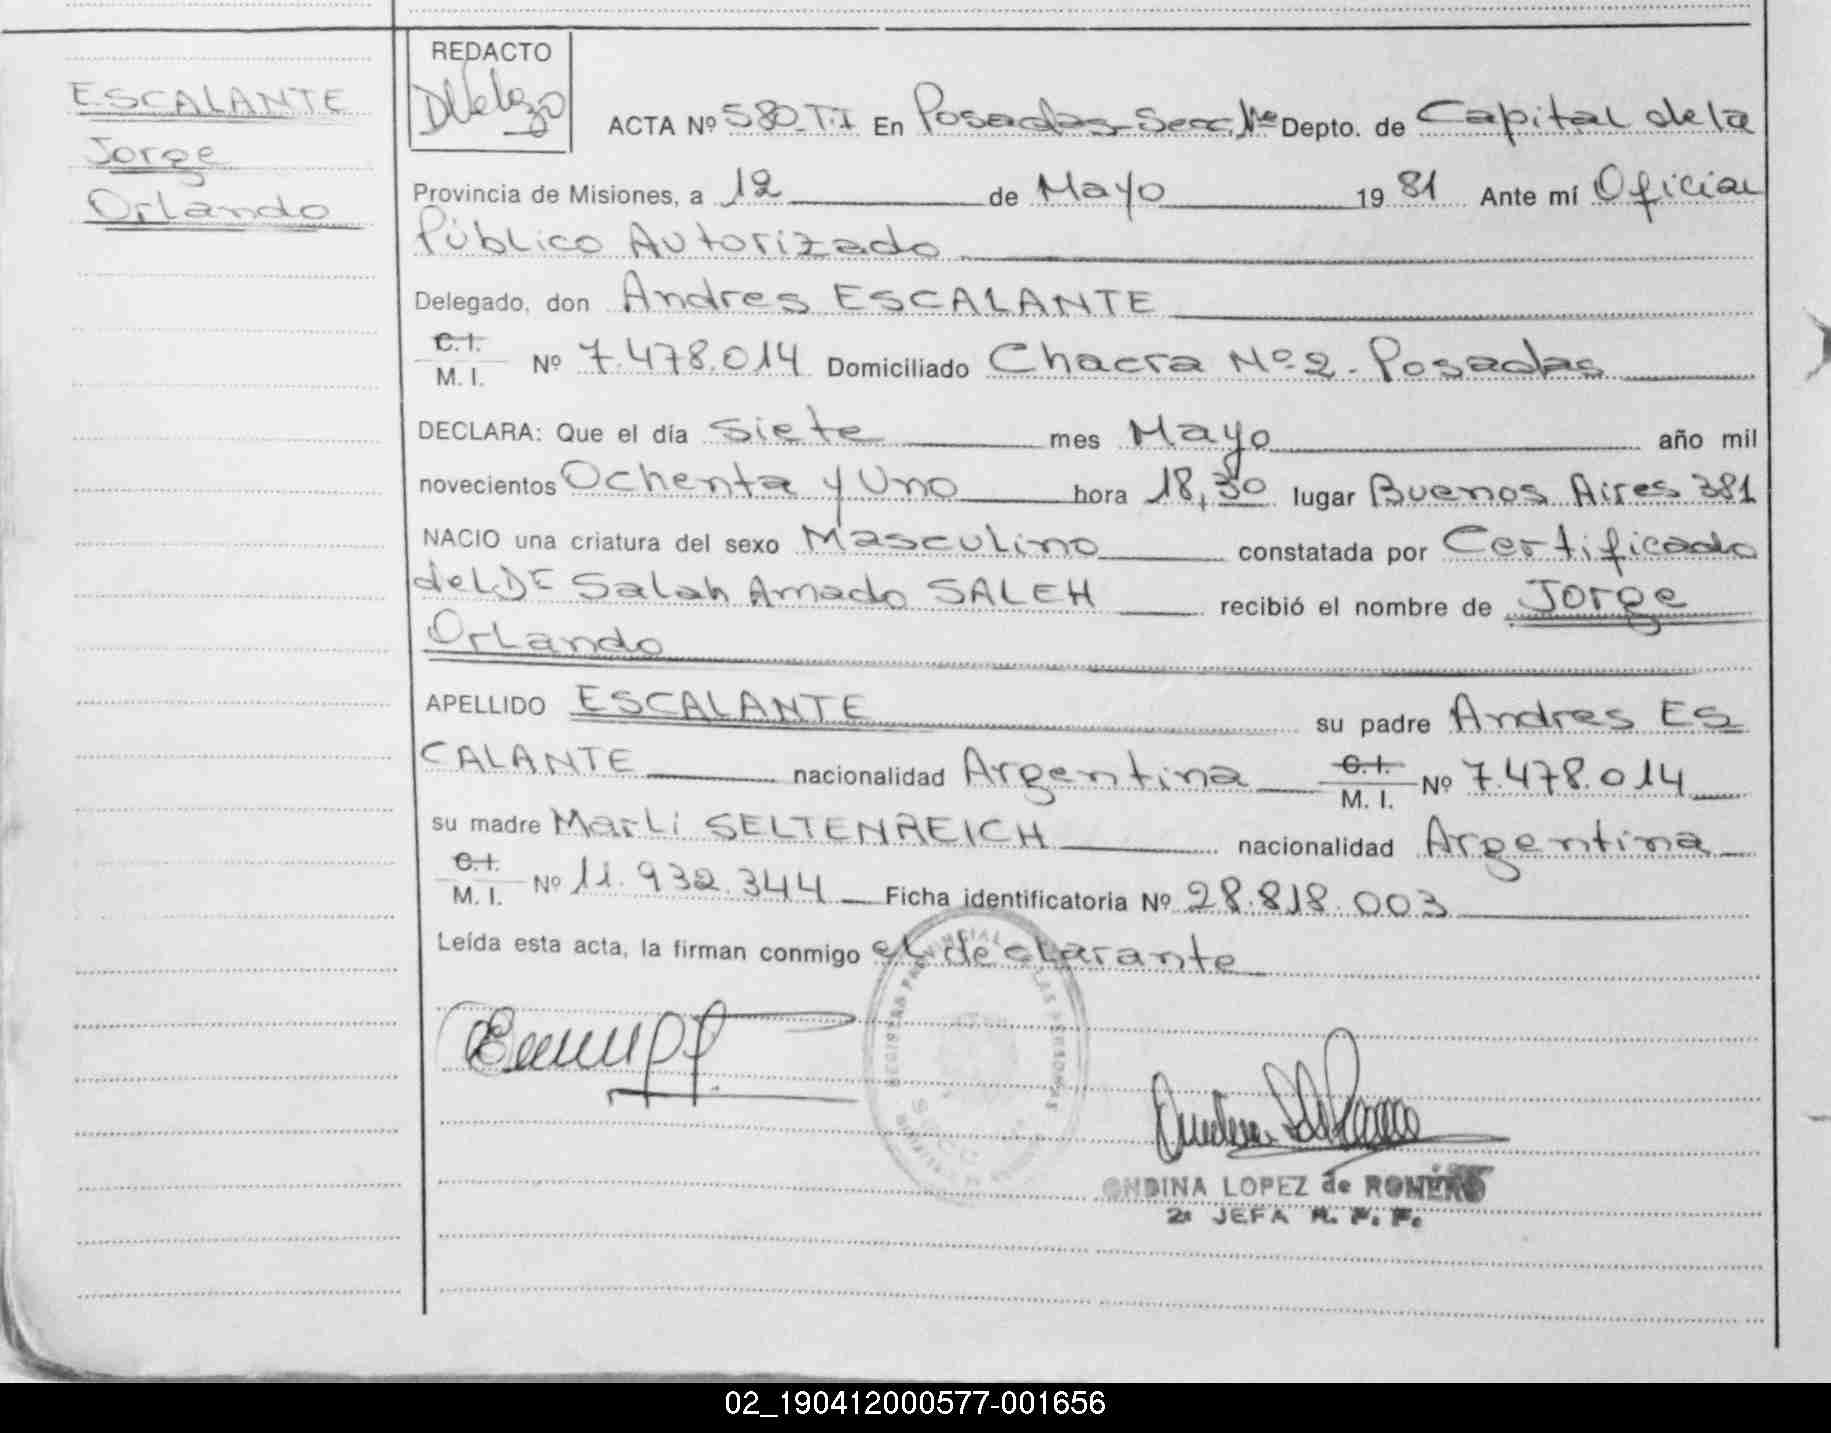 ESCALANTE
Jorge
Orlando
REDACTO
ACTA Nº 580-T.I En Posadas-Secc. 1ra Depto. de Capital de la
Provincia de Misiones, a 12 de Mayo 1981 Ante mí Oficial
Público Autorizado
Delegado, don Andres ESCALANTE
C.I.
M. I. Nº 7.478.014 Domiciliado Chacra Nº 2 - Posadas
DECLARA: Que el día siete mes Mayo año mil
novecientos Ochenta y Uno hora 18,30 lugar Buenos Aires 381
NACIO una criatura del sexo Masculino constatada por Certificado
del Dr Salah Amado SALEH recibió el nombre de Jorge
Orlando
APELLIDO ESCALANTE su padre Andres ES
CALANTE nacionalidad Argentina C.I. M. I. Nº 7.478.014
su madre Marli SELTENREICH nacionalidad Argentina
C.I.
M. I. Nº 11.932.344 Ficha identificatoria Nº 28.818.003
Leída esta acta, la firman conmigo el declarante
REGISTRO PROVINCIAL LAS PERSONAS
ONDINA LOPEZ de ROMERO
2ª JEFA R. P. P.
02_190412000577-001656